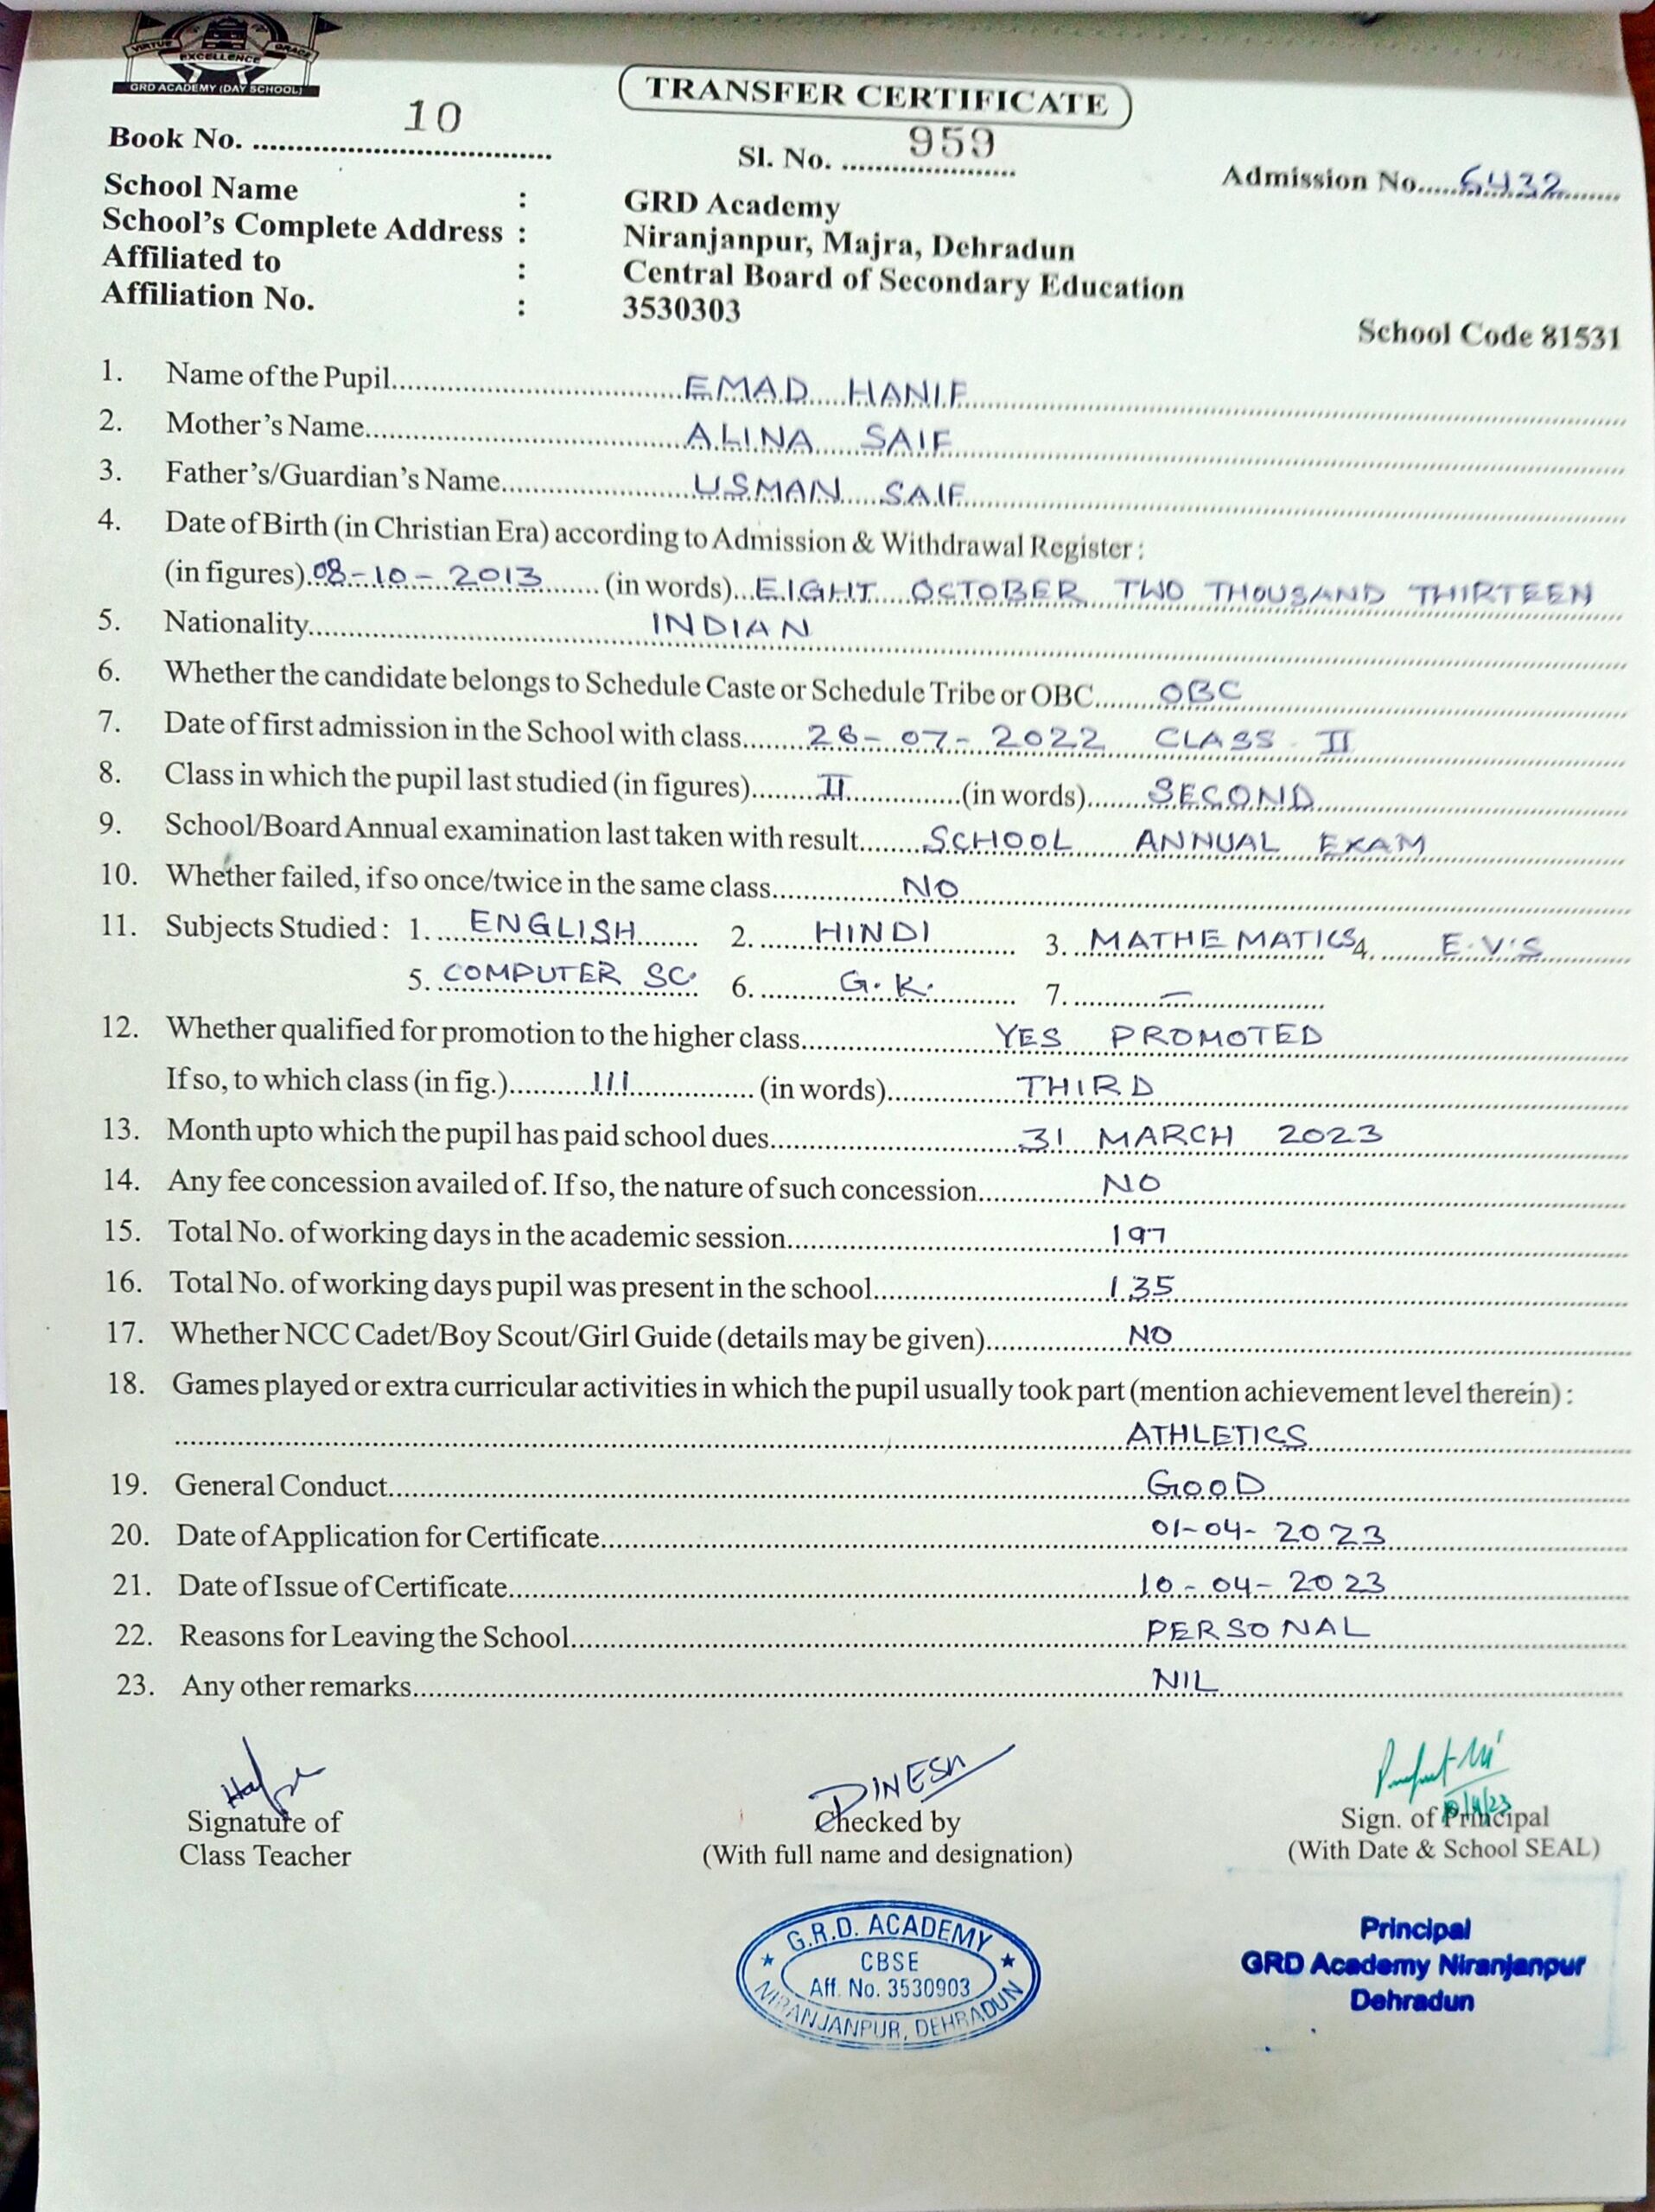 VIRTUE EXCELLENCE GRACE
GRD ACADEMY (DAY SCHOOL)
TRANSFER CERTIFICATE
Book No. 10
Sl. No. 959
Admission No. 6432
School Name : GRD Academy
School's Complete Address : Niranjanpur, Majra, Dehradun
Affiliated to : Central Board of Secondary Education
Affiliation No. : 3530303
School Code 81531
1. Name of the Pupil EMAD HANIF
2. Mother's Name ALINA SAIF
3. Father's/Guardian's Name USMAN SAIF
4. Date of Birth (in Christian Era) according to Admission & Withdrawal Register :
(in figures) 08-10-2013 (in words) EIGHT OCTOBER TWO THOUSAND THIRTEEN
5. Nationality INDIAN
6. Whether the candidate belongs to Schedule Caste or Schedule Tribe or OBC OBC
7. Date of first admission in the School with class 26-07-2022 CLASS II
8. Class in which the pupil last studied (in figures) II (in words) SECOND
9. School/Board Annual examination last taken with result SCHOOL ANNUAL EXAM
10. Whether failed, if so once/twice in the same class NO
11. Subjects Studied : 1. ENGLISH 2. HINDI 3. MATHEMATICS 4. E.V.S
5. COMPUTER SC. 6. G.K. 7. —
12. Whether qualified for promotion to the higher class YES PROMOTED
If so, to which class (in fig.) III (in words) THIRD
13. Month upto which the pupil has paid school dues 31 MARCH 2023
14. Any fee concession availed of. If so, the nature of such concession NO
15. Total No. of working days in the academic session 197
16. Total No. of working days pupil was present in the school 135
17. Whether NCC Cadet/Boy Scout/Girl Guide (details may be given) NO
18. Games played or extra curricular activities in which the pupil usually took part (mention achievement level therein) :
ATHLETICS
19. General Conduct GOOD
20. Date of Application for Certificate 01-04-2023
21. Date of Issue of Certificate 10-04-2023
22. Reasons for Leaving the School PERSONAL
23. Any other remarks NIL
DINESH
10/4/23
Signature of Checked by Sign. of Principal
Class Teacher (With full name and designation) (With Date & School SEAL)
G.R.D. ACADEMY
CBSE
Aff. No. 3530903
NIRANJANPUR, DEHRADUN
Principal
GRD Academy Niranjanpur
Dehradun